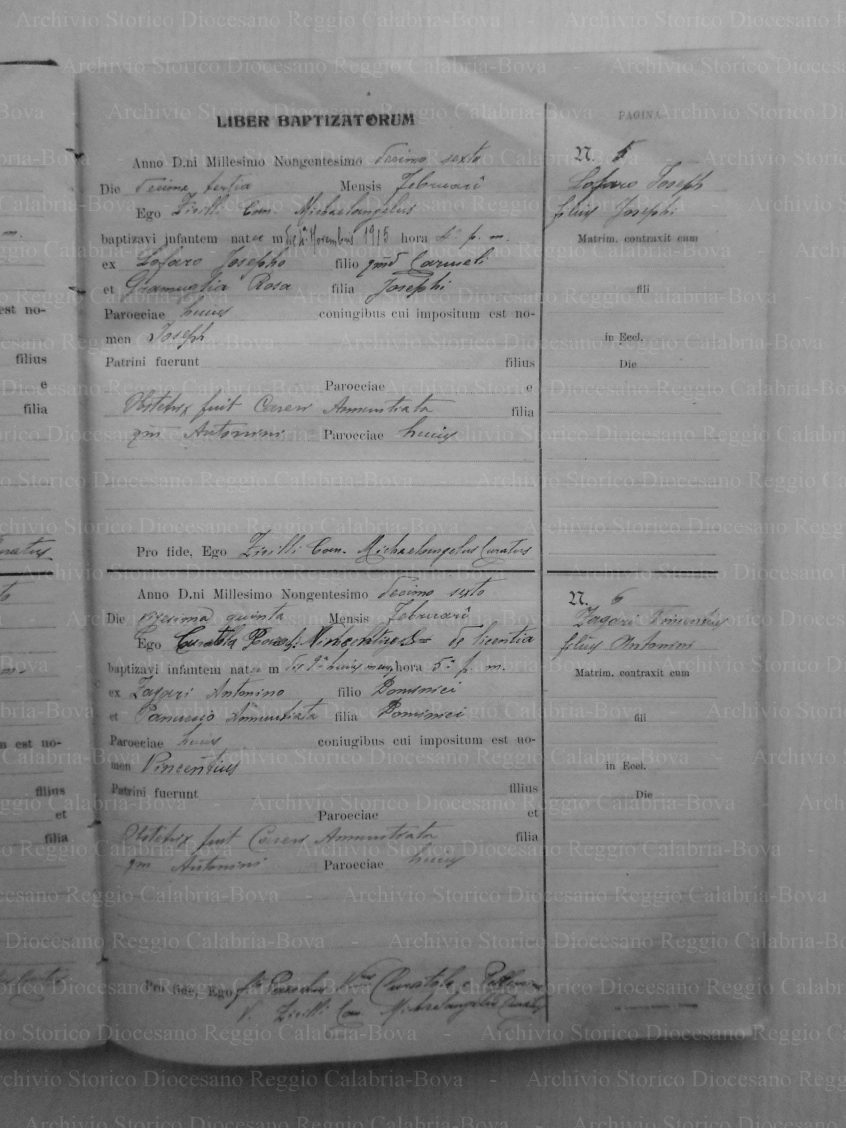 LIBER BAPTIZATORUM
PAGINA
Anno D.ni Millesimo Nongentesimo Decimo sexto
Die Decima tertia Mensis Februarii
Ego Zirilli Can. Michaelangelus
baptizavi infantem natum die Novembris 1915 hora 4ª p. m.
ex Lofaro Josepho filio qmd Carmeli
et Gramuglia Rosa filia Josephi
Paroeciae huius coniugibus cui impositum est no-
men Joseph
Patrini fuerunt filius
Paroeciae e
Obstetrix fuit Caseri Annuntiata filia
qm Antonini Paroeciae huius
Pro fide, Ego Zirilli Can. Michaelangelus Curatus
N. 5
Lofaro Joseph
filius Josephi
Matrim. contraxit cum
fili
in Eccl.
Die
Anno D.ni Millesimo Nongentesimo Decimo sexto
Die vigesima quinta Mensis Februarii
Ego Curatola Vincentius de licentia
baptizavi infantem natum die huius mensis hora 5ª p. m.
ex Zagari Antonino filio Dominici
et Annuntiata filia Dominici
Paroeciae huius coniugibus cui impositum est no-
men Vincentius
Patrini fuerunt filius
Paroeciae et
Obstetrix fuit Caseri Annuntiata filia
qm Antonini Paroeciae huius
Pro fide, Ego Curatola
V. Zirilli Can. Michaelangelus Curatus
N. 6
Zagari Vincentius
filius Antonini
Matrim. contraxit cum
fili
in Eccl.
Die
est no-
filius
e
filia
est no-
filius
et
filia
Archivio Storico Diocesano Reggio Calabria-Bova